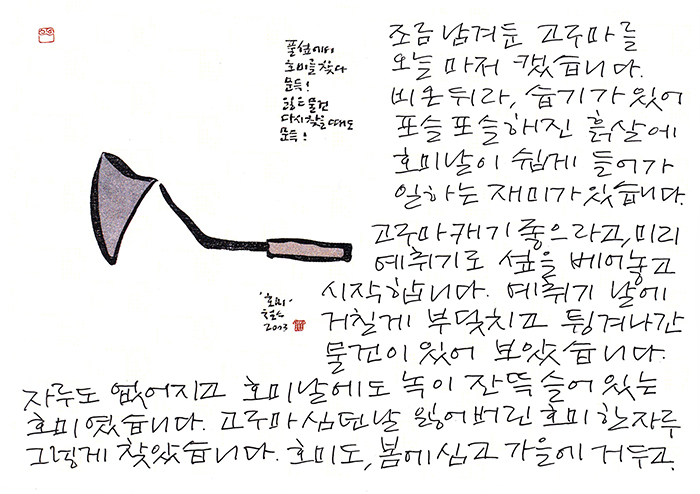 풀섶에서
호미를 찾다
문득!
잃은 물건
다시 찾을 때도
문득!
조금 남겨둔 고구마를
오늘 마저 캤습니다.
비온 뒤라, 습기가 있어
포슬포슬해진 흙살에
호미날이 쉽게 들어가
일하는 재미가 있습니다.
고구마 캐기 좋으라고, 미리
예취기로 섶을 베어놓고
시작합니다. 예취기 날에
거칠게 부딪치고 튕겨나간
물건이 있어 보았습니다.
자루도 없어지고 호미날에도 녹이 잔뜩 슬어 있는
호미였습니다. 고구마 심던 날 잃어버린 호미 한 자루
그렇게 찾았습니다. 호미도, 봄에 심고 가을에 거두고.
'호미'
2003